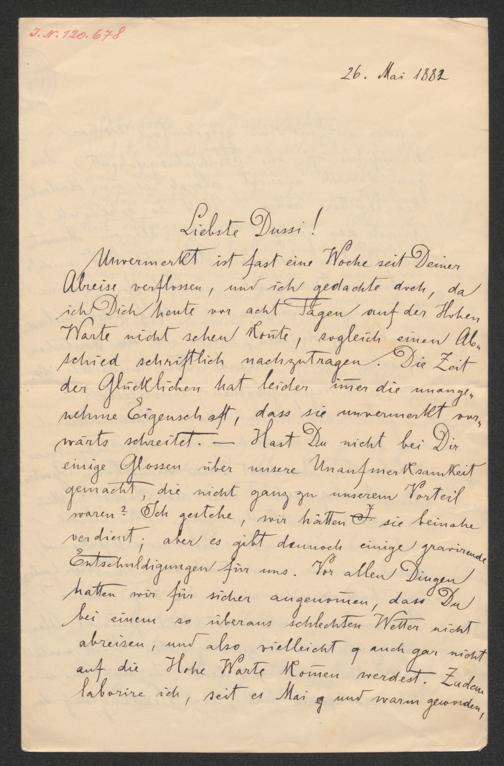 J. N. 120.678
26. Mai 1882
Liebste Dussi!
Unvermerkt ist fast eine Woche seit Deiner
Abreise verflossen, und ich gedachte doch, da
ich Dich heute vor acht Tagen auf der Hohen
Warte nicht sehen koñte, sogleich einen Ab-
schied schriftlich nachzutragen. Die Zeit
der Glücklichen hat leider im̃er die unange-
nehme Eigenschaft, dass sie unvermerkt vor-
wärts schreitet. — Hast Du nicht bei Dir
einige Glossen über unsere Unaufmerksamkeit
gemacht, die nicht ganz zu unserem Vorteil
waren? Ich gestehe, wir hätten sie beinahe
verdient; aber es gibt dennoch einige gravirende
Entschuldigungen für uns. Vor allen Dingen
hatten wir für sicher angenom̃en, dass Du
bei einem so überaus schlechten Wetter nicht
abreisen, und also vielleicht auch gar nicht
auf die Hohe Warte kom̃en werdest. Zudem
laborire ich, seit es Mai und warm geworden,